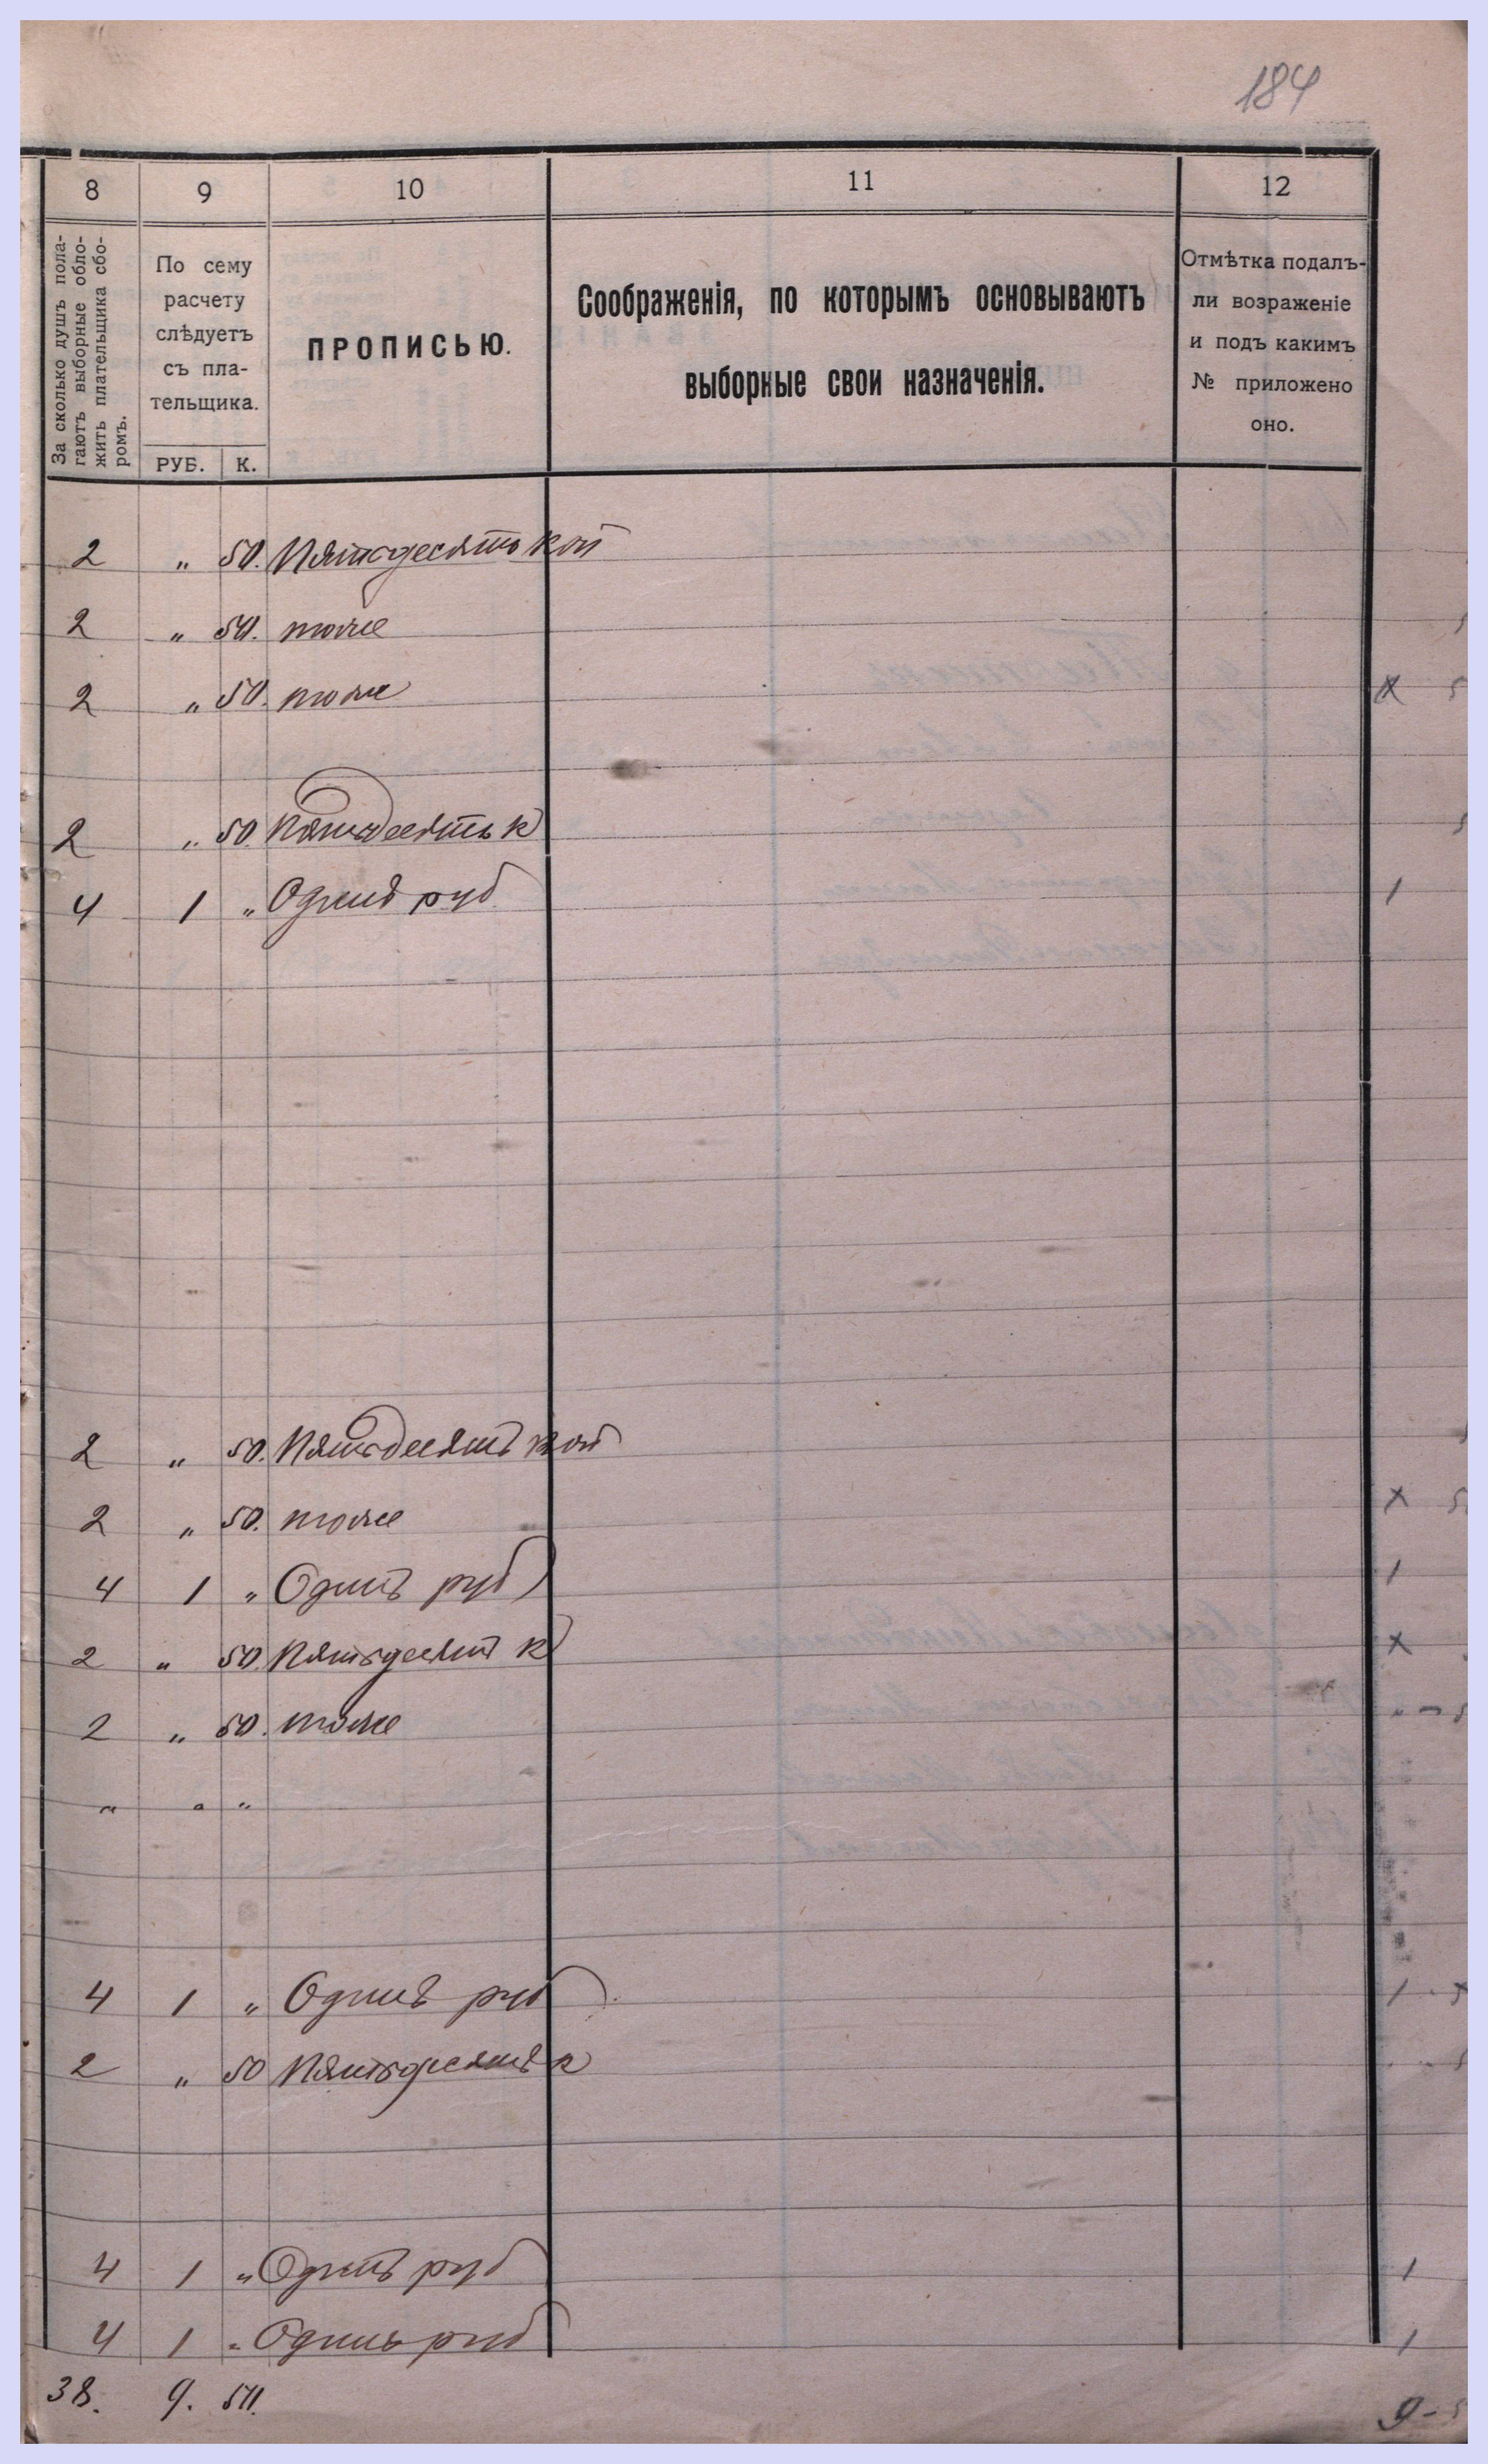 184
8 9 10 11 12
За сколько душъ пола-
гаютъ выборные обло-
жить плательщика сбо-
ромъ.
По сему
расчету
слѣдуетъ
съ пла-
тельщика.
РУБ. К.
ПРОПИСЬЮ.
Соображенія, по которымъ основываютъ
выборные свои назначенія.
Отмѣтка подалъ-
ли возраженіе
и подъ какимъ
№ приложено
оно.
2 „ 50. Пятьдесять коп
2 „ 50. тоже
2 „ 50. тоже х 5
2 „ 50 Пятьдесять к
4 1 „ Одинъ руб 1
2 „ 50. Пятьдесятъ коп
2 „ 50. тоже х 5
4 1 „ Одинъ руб 1
2 „ 50. Пятьдесятъ к х
2 „ 50. тоже „ - 5
„ „ „
4 1 „ Одинъ руб 1
2 „ 50 Пятьдесятъ к
4 1 „ Одинъ руб 1
4 1 „ Одинъ руб 1
38. 9. 50. 9 - 5